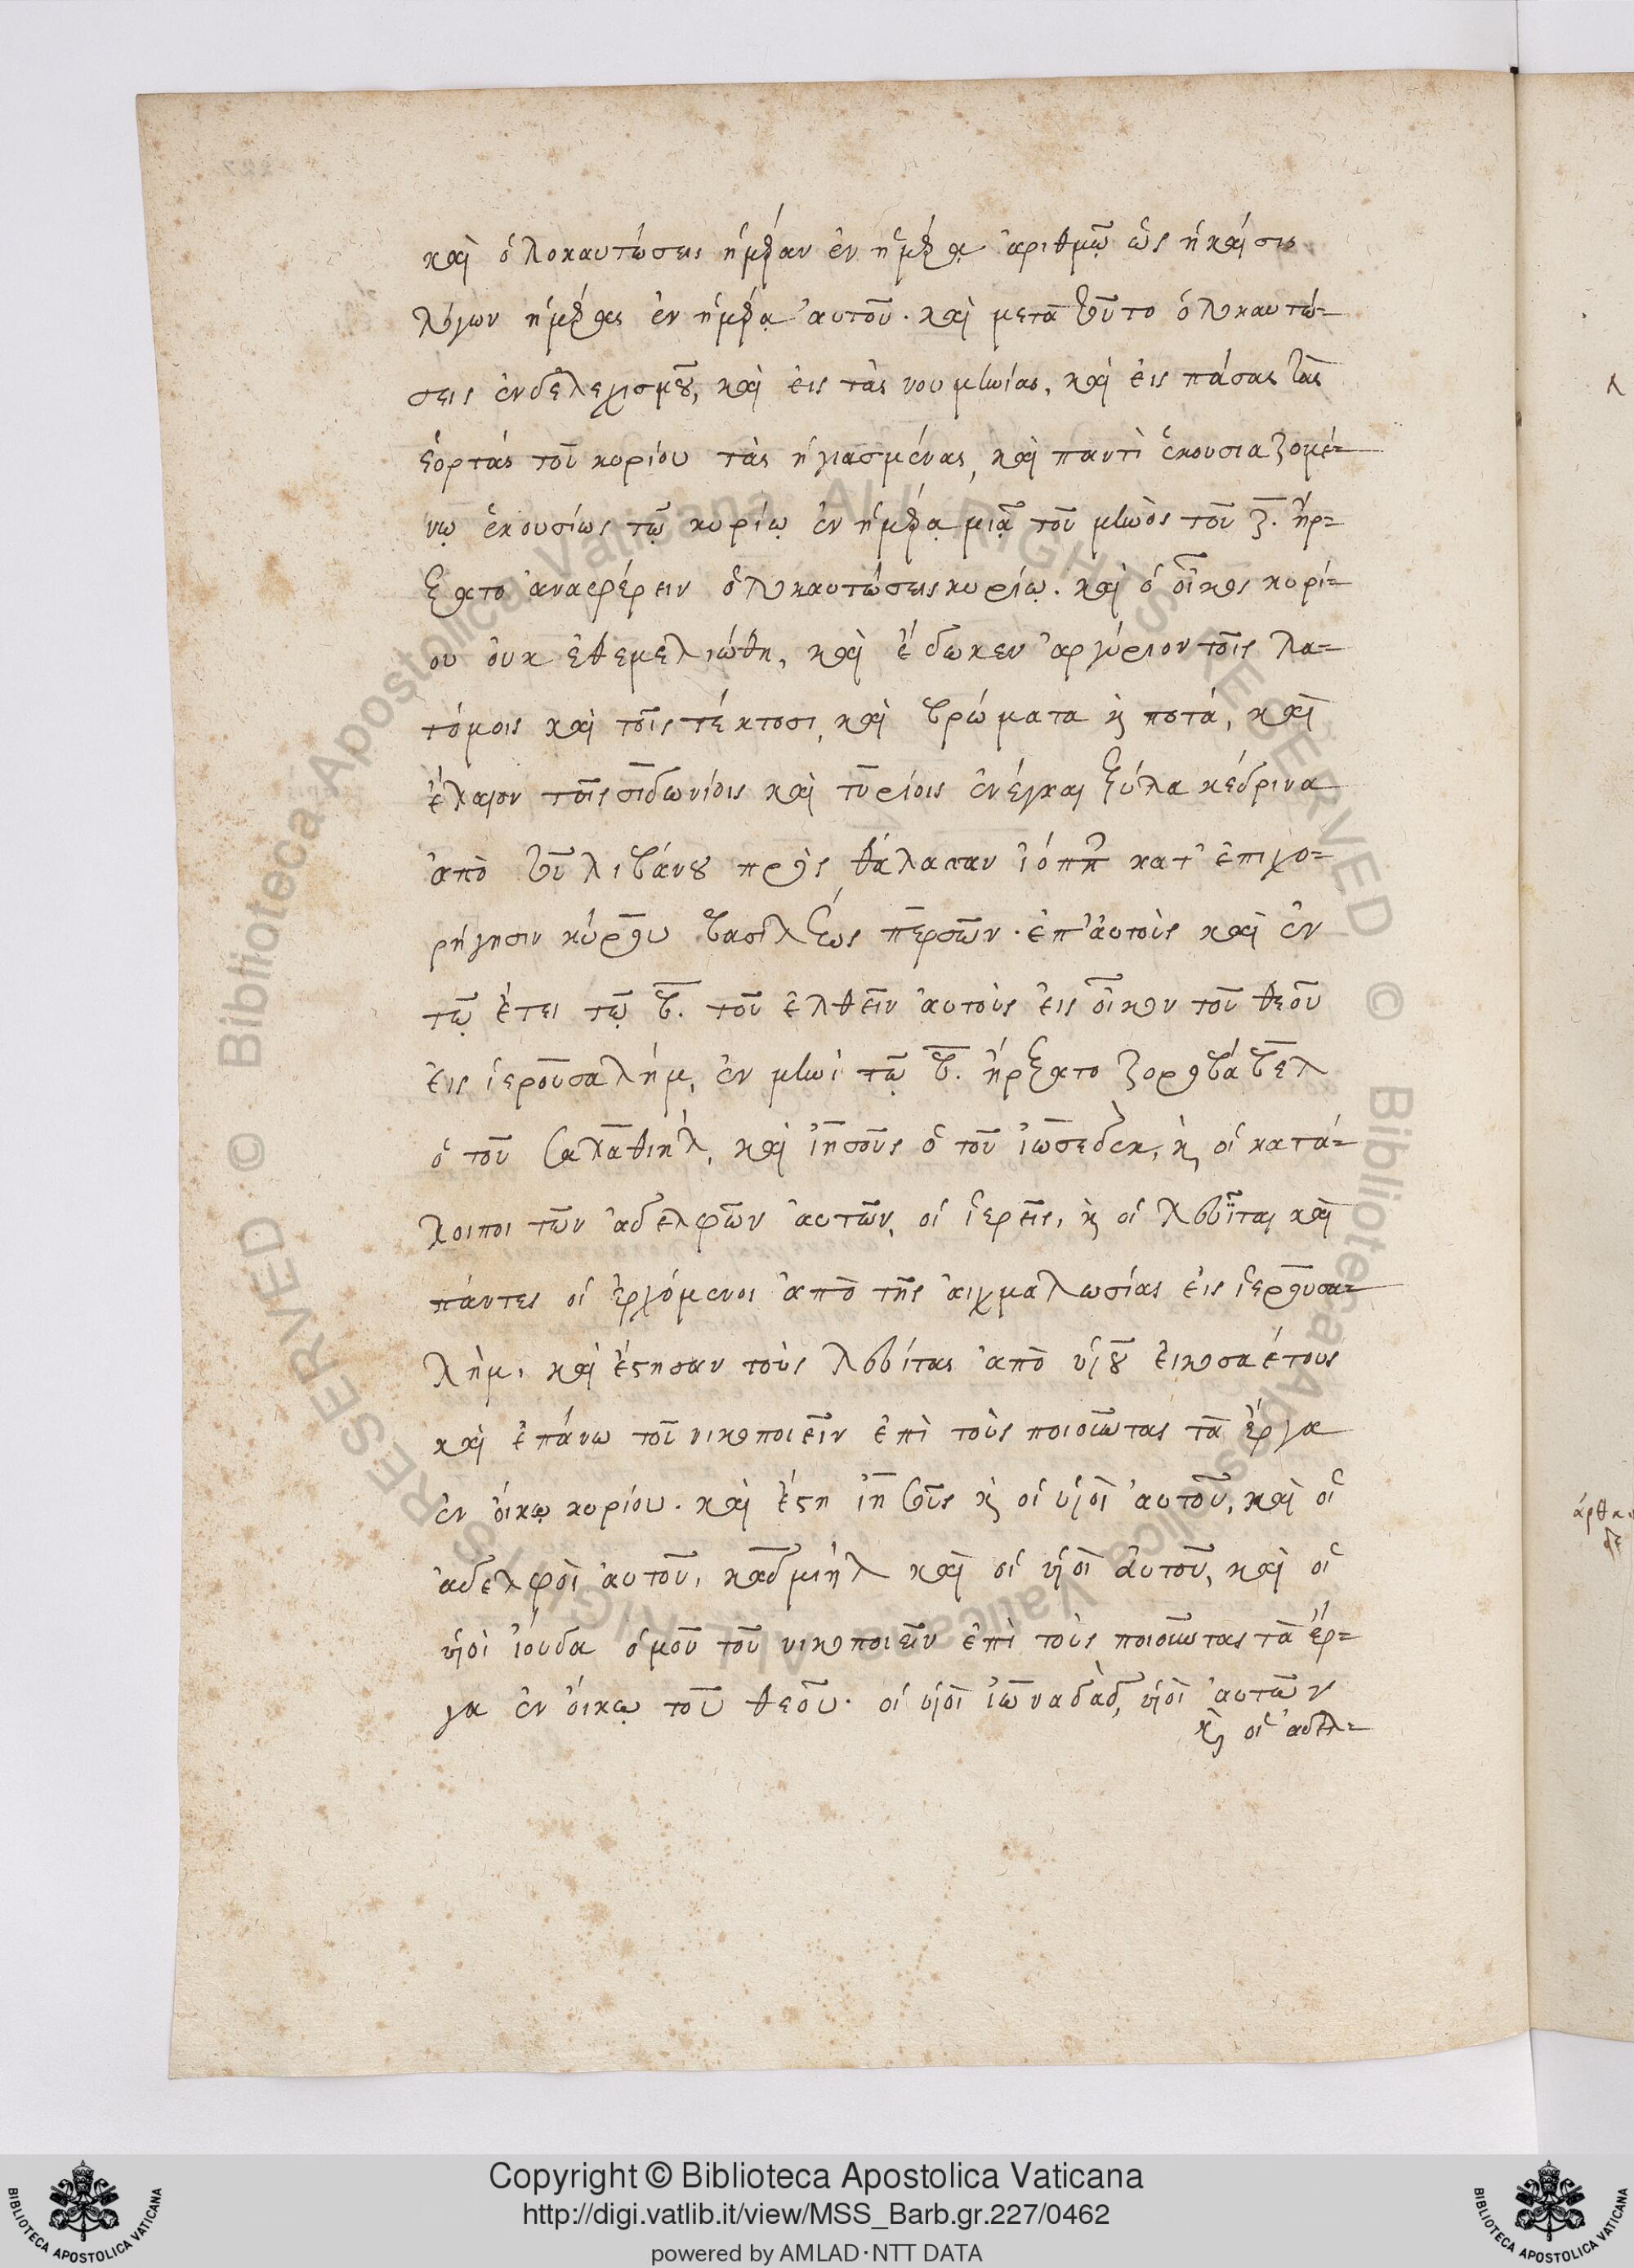 καὶ ὁλοκαυτώσεις ἡμέραν ἐν ἡμέρᾳ ἀριθμῷ ὡς ἡ κρίσις
λόγων ἡμέρας ἐν ἡμέρᾳ αὐτοῦ. καὶ μετὰ τοῦτο ὁλοκαυτώ=
σεις ἐνδελεχισμοῦ, καὶ εἰς τὰς νουμηνίας, καὶ εἰς πάσας τὰς
ἑορτὰς τοῦ κυρίου τὰς ἡγιασμένας, καὶ παντὶ ἑκουσιαζομέ=
νῳ ἑκουσίως τῷ κυρίῳ ἐν ἡμέρᾳ μιᾷ τοῦ μηνὸς τοῦ ζ. ἤρ=
ξατο ἀναφέρειν ὁλοκαυτώσεις κυρίῳ. καὶ ὁ οἶκος κυρί=
ου οὐκ ἐθεμελιώθη, καὶ ἔδωκεν ἀργύριον τοῖς λα=
τόμοις καὶ τοῖς τέκτοσι, καὶ βρώματα κ ποτά, καὶ
ἔλαιον τοῖς σιδωνίοις καὶ τυρίοις ἐνέγκαι ξύλα κέδρινα
ἀπὸ τοῦ λιβάνου πρὸς θάλασσαν ἰόππ κατ' ἐπιχο=
ρήγησιν κύρου βασιλέως περσῶν. ἐπ' αὐτοὺς καὶ ἐν
τῷ ἔτει τῷ β. τοῦ ἐλθεῖν αὐτοὺς εἰς οἶκον τοῦ θεοῦ
εἰς ἱερουσαλήμ, ἐν μηνὶ τῷ β. ἤρξατο ζοροβάβελ
ὁ τοῦ σαλαθιήλ, καὶ ἰησοῦς ὁ τοῦ ἰωσεδὲκ, κ οἱ κατά=
λοιποι τῶν ἀδελφῶν αὐτῶν, οἱ ἱερεῖς, κ οἱ λευῖται καὶ
πάντες οἱ ἐρχόμενοι ἀπὸ τῆς αἰχμαλωσίας εἰς ἱερουσα=
λὴμ, καὶ ἔστησαν τοὺς λευίτας ἀπὸ υἱοῦ εἰκοσαέτους
καὶ ἐπάνω τοῦ νικοποιεῖν ἐπὶ τοὺς ποιοῦντας τὰ ἔργα
ἐν οἴκῳ κυρίου. καὶ ἔστη ἰησοῦς κ οἱ υἱοὶ αὐτοῦ, καὶ οἱ
ἀδελφοὶ αὐτοῦ, καδμιὴλ καὶ οἱ υἱοὶ αὐτοῦ, καὶ οἱ
υἱοὶ ἰούδα ὁμοῦ τοῦ νικοποιεῖν ἐπὶ τοὺς ποιοῦντας τὰ ἔρ=
γα ἐν οἴκῳ τοῦ θεοῦ. οἱ υἱοὶ ἰωναδὰδ, υἱοὶ αὐτῶν
κ οἱ ἀδελ=
Copyright © Biblioteca Apostolica Vaticana
http://digi.vatlib.it/view/MSS_Barb.gr.227/0462
powered by AMLAD·NTT DATA
BIBLIOTECA APOSTOLICA VATICANA
BIBLIOTECA APOSTOLICA VATICANA